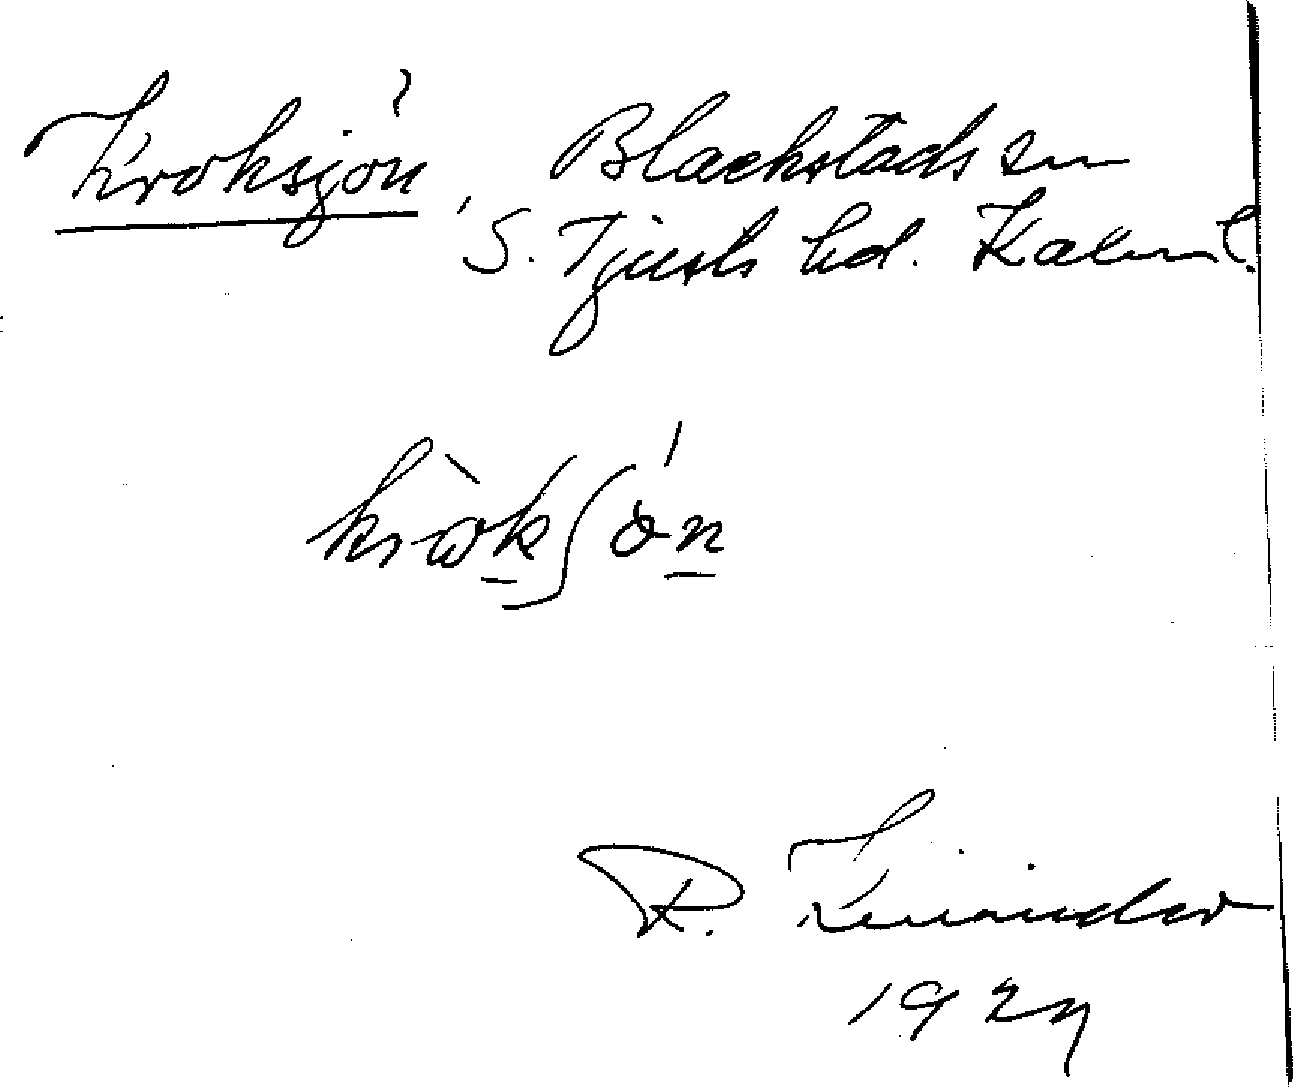 Kroksjön, Blackstads sn
S. Tjusts hd. Kalm. l.
kròkʃön
R. 
1927